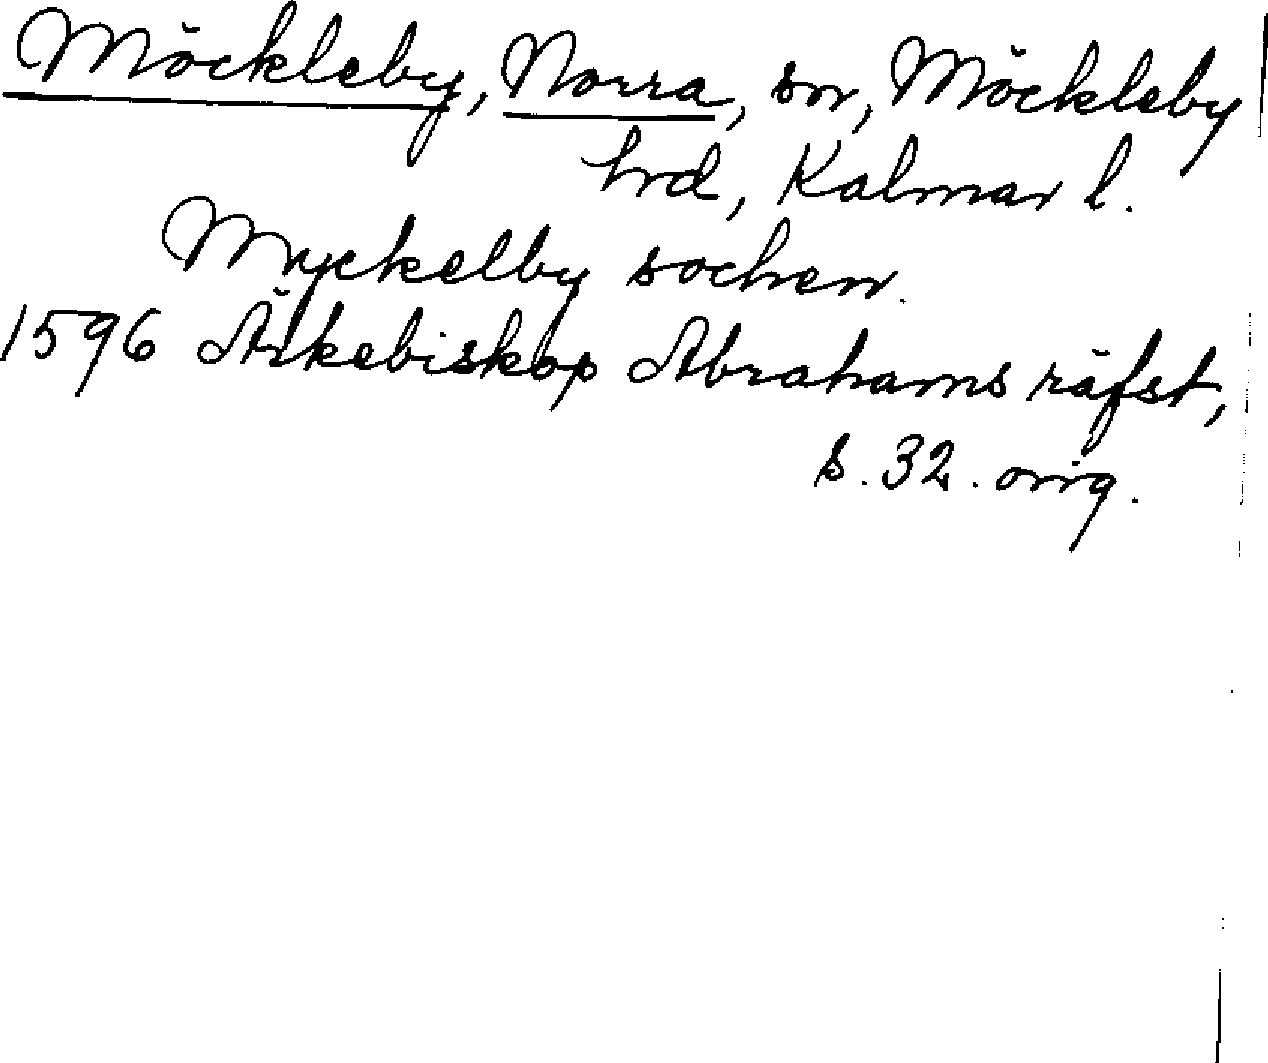 Möckleby, Norra, sn, Möckleby
hrd, Kalmar l.
Myckelby sochen.
1596 Ärkebiskop Abrahams räfst,
s. 32. orig.